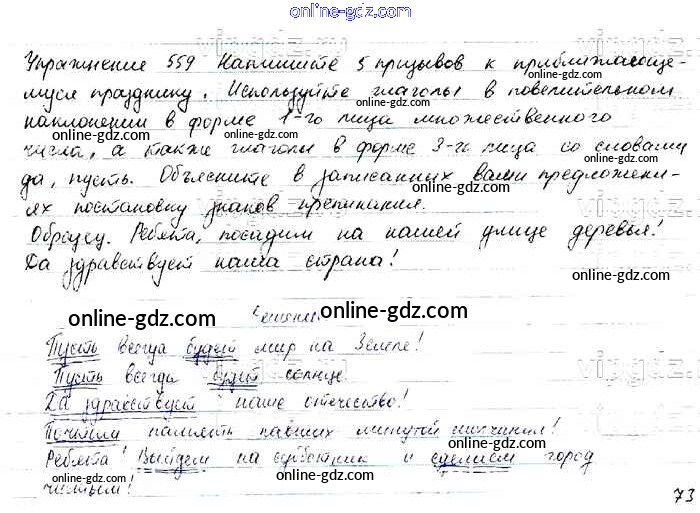 online-gdz.com
Упражнение 559 Напишите 5 призывов к приближающе-
муся празднику. Используйте глаголы в повелительном
наклонении в форме 1-го лица множественного
числа, а также глаголы в форме 3-го лица со словами
да, пусть. Объясните в записанных вами предложени-
ях постановку знаков препинания.
Образец. Ребята, посадим на нашей улице деревья!
Да здравствует наша страна!
online-gdz.com online-gdz.com
Пусть всегда будет мир на Земле!
Пусть всегда будет солнце.
Да здравствует наше отечество!
Почтим память павших минутой молчания!
Ребята! Выйдем на субботник и сделаем город
чистым!
73